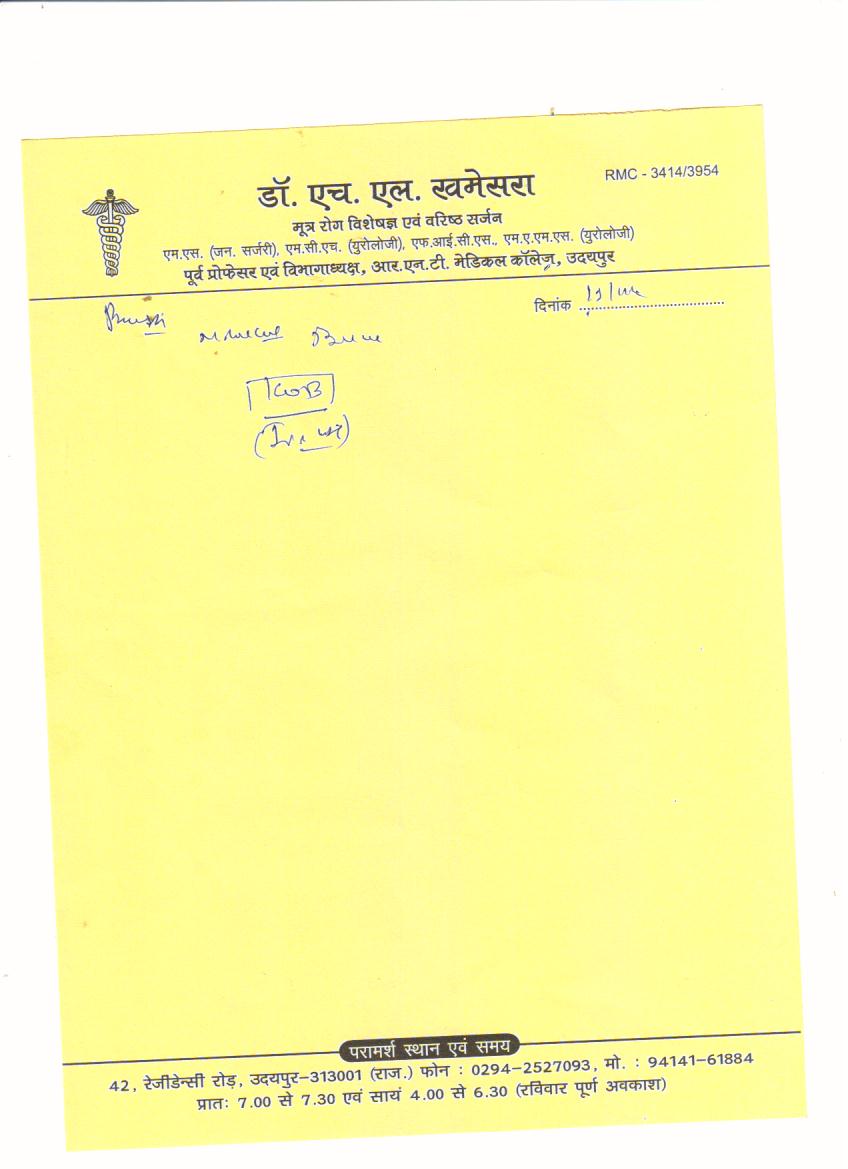 डॉ. एच. एल. खमेसरा
RMC - 3414/3954
मूत्र रोग विशेषज्ञ एवं वरिष्ठ सर्जन
एम.एस. (जन. सर्जरी), एम.सी.एच. (युरोलोजी), एफ.आई.सी.एस., एम.ए.एम.एस. (युरोलोजी)
पूर्व प्रोफेसर एवं विभागाध्यक्ष, आर.एन.टी. मेडिकल कॉलेज, उदयपुर
दिनांक
परामर्श स्थान एवं समय
42, रेजीडेन्सी रोड़, उदयपुर-313001 (राज.) फोन : 0294-2527093, मो. : 94141-61884
प्रातः 7.00 से 7.30 एवं सायं 4.00 से 6.30 (रविवार पूर्ण अवकाश)